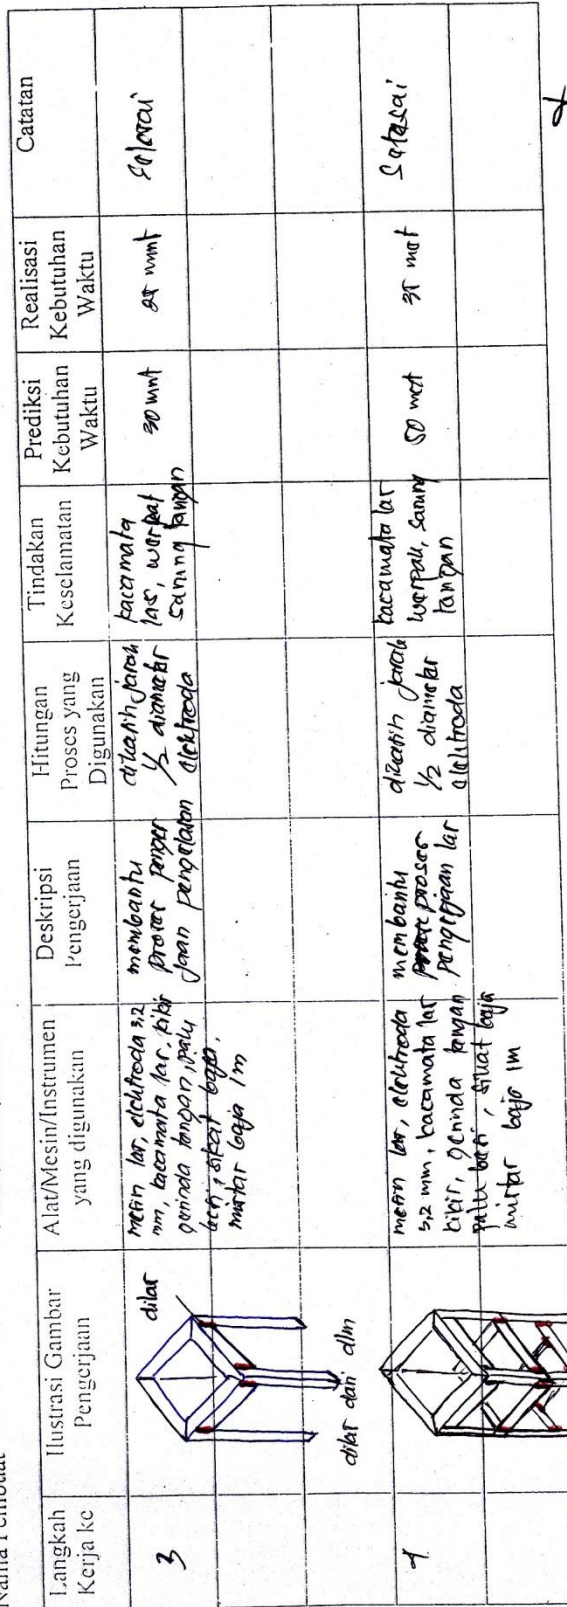 Nama Pembuat
Langkah
Kerja ke
Ilustrasi Gambar
Pengerjaan
Alat/Mesin/Instrumen
yang digunakan
Deskripsi
Pengerjaan
Hitungan
Proses yang
Digunakan
Tindakan
Keselamatan
Prediksi
Kebutuhan
Waktu
Realisasi
Kebutuhan
Waktu
Catatan
3
dilas
dilas dari dlm
mesin las, elektroda 3,2
mm, kacamata las, kikir
gerinda tangan, palu
besi, sikat baja,
mistar baja 1m
membantu
proses penger
jaan pengelasan
dikasih jarak
1/2 diameter
elektroda
kacamata
las, werpak
sarung tangan
30 mnt
25 mnt
selesai
mesin las, elektroda
3,2 mm, kacamata las
kikir, gerinda tangan
palu besi, sikat baja
mistar baja 1m
membantu
proses
pengerjaan las
dikasih jarak
1/2 diameter
elektroda
kacamata las
werpak, sarung
tangan
50 mnt
35 mnt
selesai